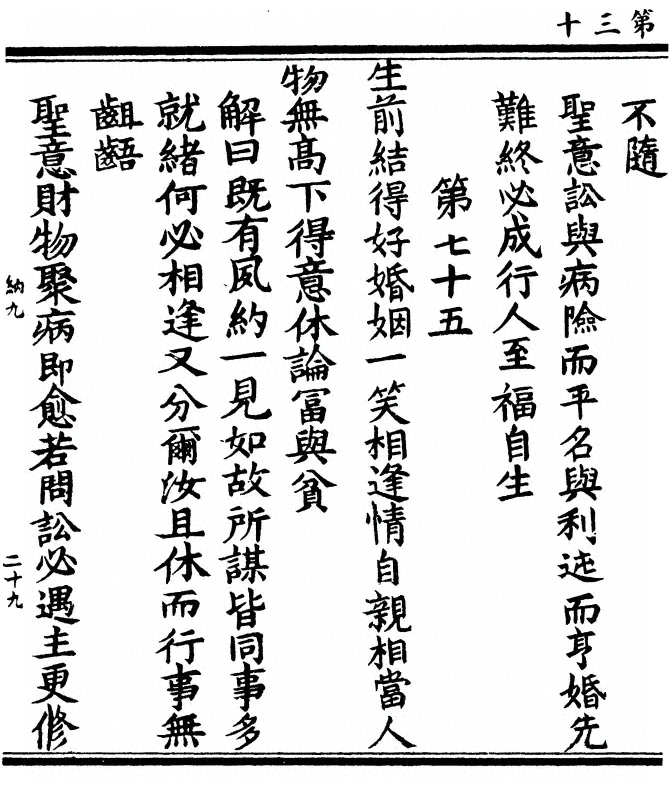 第三十
不隨
聖意訟與病險而平名與利迍而亨婚先
難終必成行人至福自生
第七十五
生前結得好婚姻一笑相逢情自親相當人
物無高下得意休論冨與貧
解曰既有夙約一見如故所謀皆同事多
就緒何必相逢又分爾汝且休而行事無
齟齬
聖意財物聚病即愈若問訟必遇主更修
納九
二十九